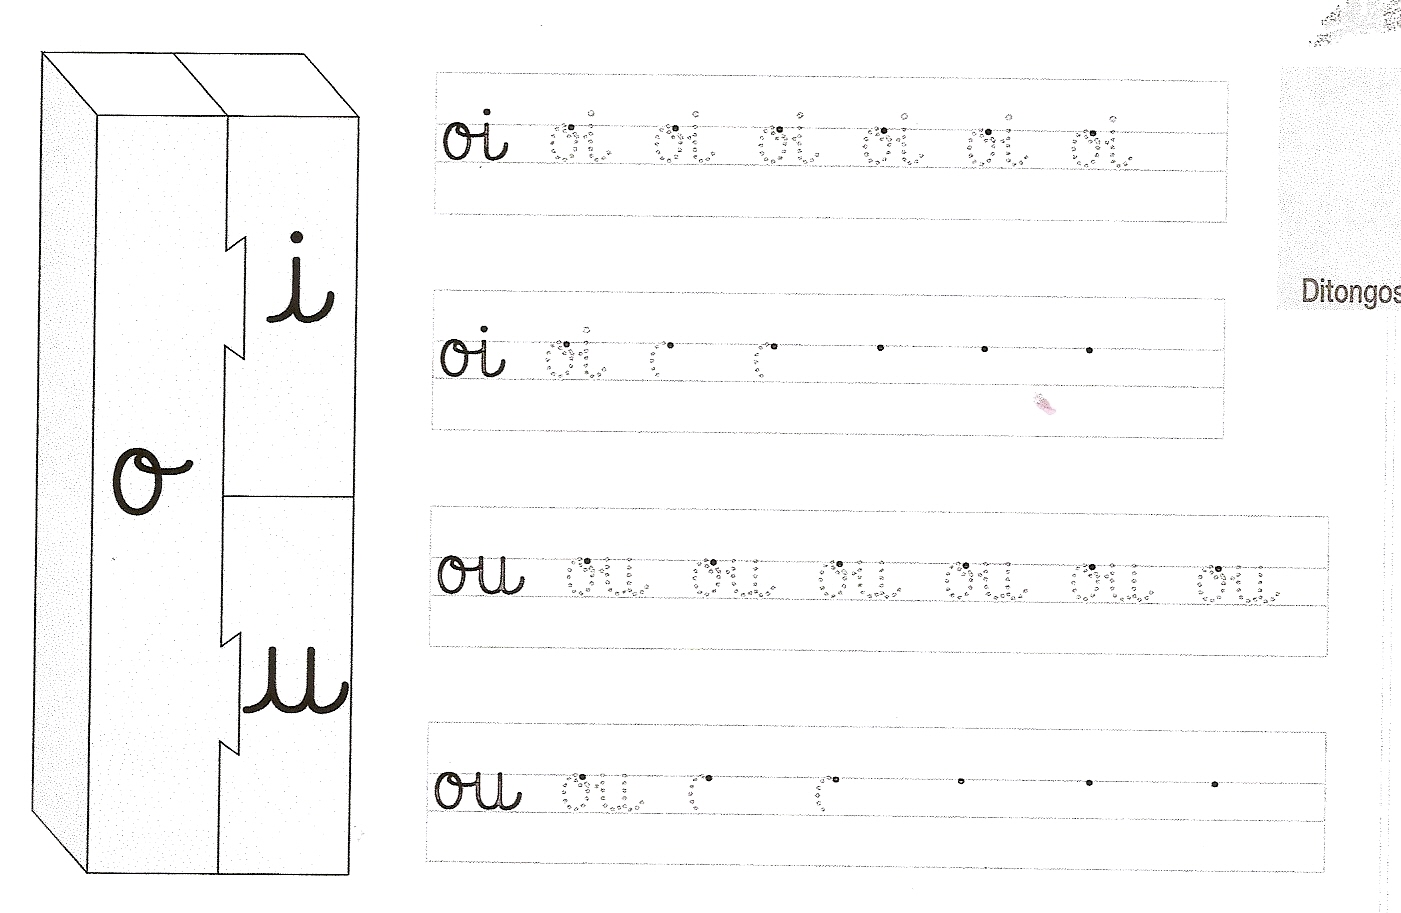 i
o
u
oi oi oi oi oi oi oi
Ditongos
oi oi
ou ou ou ou ou ou ou
ou ou